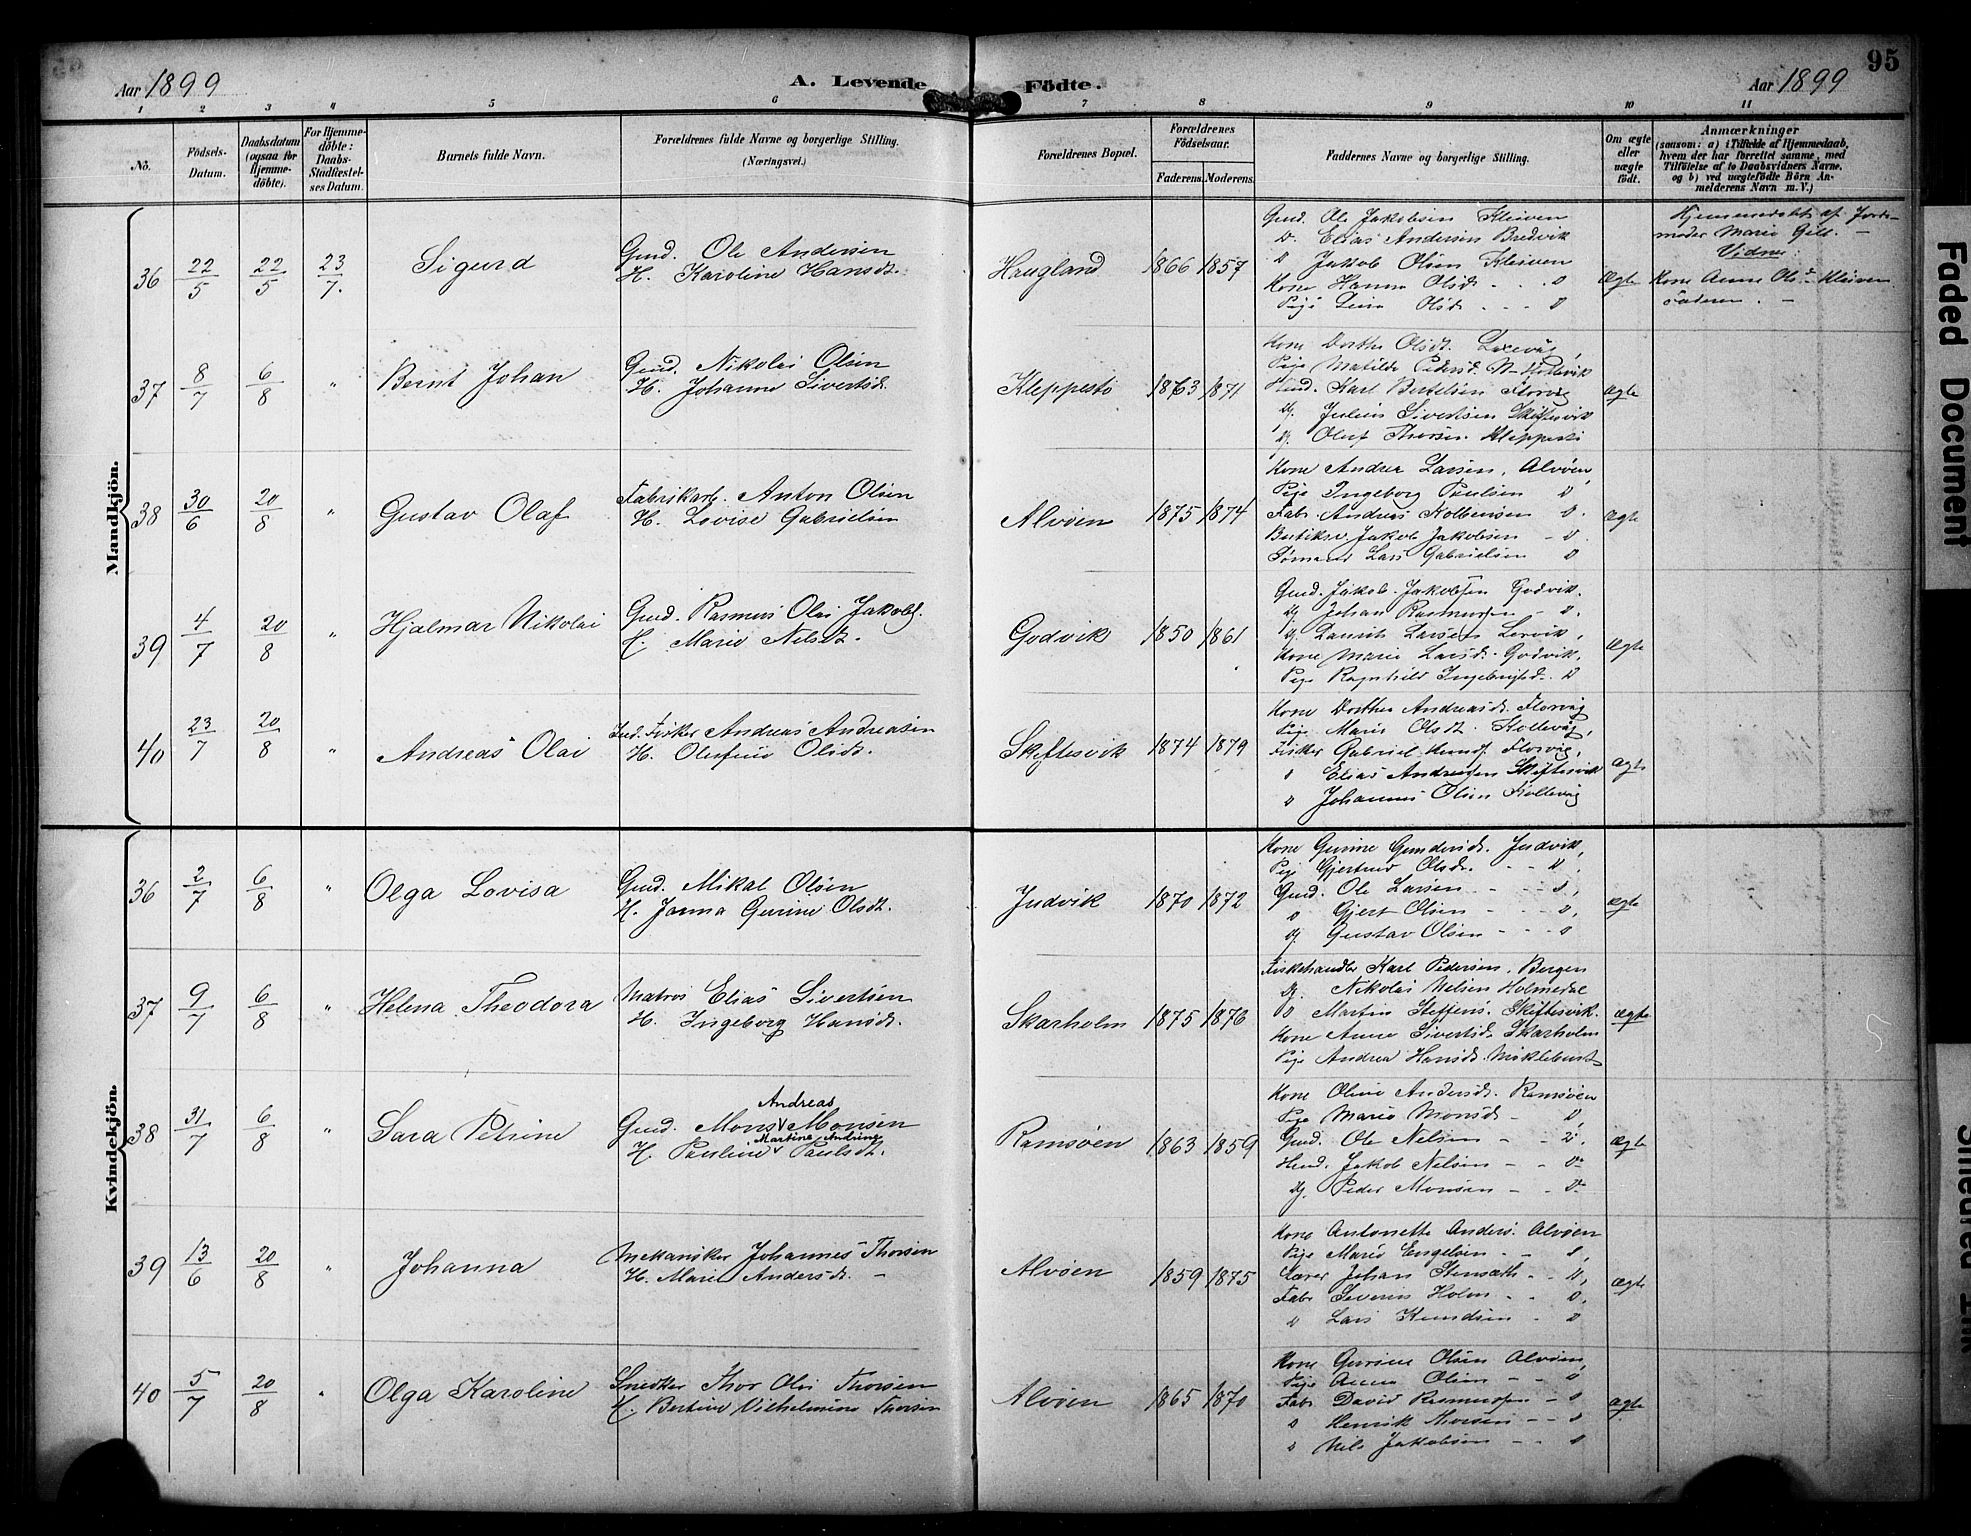 95
Aar 1899
A. Levende Födte.
Aar 1899
1 2 3 4 5 6 7 8 9 10 11
No.
Födsels-Datum.
Daabsdatum (ogsaa for Hjemme-døbte).
For Hjemme-døbte: Daabs-Stadfæstel-ses Datum.
Barnets fulde Navn.
Forældrenes fulde Navne og borgerlige Stilling. (Næringsvei.)
Forældrenes Bopæl.
Forældrenes Födselsaar.
Faderens. Moderens.
Faddernes Navne og borgerlige Stilling.
Om ægte eller uægte födt.
Anmærkninger
(saasom: a) i Tilfælde af Hjemmedaab,
hvem der har forrettet samme, med
Tilföielse af to Daabsvidners Navne,
og b) ved uægtefödte Börn An-
melderens Navn m. V.)
Mandkjön.
36 22/5 22/5 23/7. Sigurd
Gmd. Ole Andersen
H. Karoline Hansdt.
Haugland 1866 1857
Gmd. Ole Jakobsen Kleiven
D. Elias Andersen Bredvik
D Jakob Olsen Kleiven
Kone Hanna Olsdt. - - D
Pige Lina Olsdt. - - D
Ægte
Hjemmedøbt af Jord-
moder Marie Gill. -
Vidner:
Kone Anne Olsdt. Kleiven
Faderen. -
37 8/7 6/8 " Bernt Johan
Gmd. Nikolai Olsen
H. Johanne Sivertsdt.
Kleppestö 1863 1871
Kone Dorthea Olsdt.
Pige Matilde Pedersdt.
Karl Bertelsen Florvåg
Dj. Julius Sivertsen Skiftesvik
Dj. Oluf Thorsen Kleppestö
ægte
38 30/6 20/8 " Gustav Olaf
Fabrikarb. Anton Olsen
H. Lovise Gabrielsen
Alvøen 1875 1874
Kone Andrea Larsen, Alvøen,
Pige Ingeborg Paulsen D
Fabr. Andreas Kolbensen D.
Jakob Jakobsen - D.
Sømand Lars Gabrielsen D
ægte
39 4/7 20/8 " Hjalmar Nikolai
Gmd. Rasmus Olai Jakobs.
H. Marie Nelsdt.
Godvik 1850 1861
Gmd. Jakob Jakobsen Godvik.
Dj Johan Rasmussen - D.
Dj Laurits Larsen Lervik,
Kone Marie Larsdt. Godvik,
Pige Ragnhild Ingebrigtsd. D
ægte
40 23/7 20/8 " Andreas Olai
Ind. Fisker Andreas Andreasen
H. Olufine Olsdt.
Skiftesvik 1874 1879
Kone Dorthea Andreasdt. Florvåg
Pige Marie Olsdt. Kollevåg,
Fisker Gabriel Florvåg,
D Elias Andreasen Skiftesvik
D Johannes Olsen Kollevåg
ægte
Kvindekjön.
36 2/7 6/8 " Olga Lovisa
Gmd. Mikal Olsen
H. Janna Gurine Olsdt.
Judvik 1870 1872
Kone Gurine Gundersdt. Judvik,
Pige Gjertrud Olsdt. - - D.
Gmd. Ole Larsen - - D,
D Gjert Olsen - - D,
Dj. Gustav Olsen - - D
ægte
37 9/7 6/8 " Helena Theodora
Matros Elias Sivertsen
H. Ingeborg Hansdt.
Skarholm 1875 1876
Fiskehandler Karl Pedersen, Bergen
Dj. Nikolai Nelsen Holmedal
D Martin Steffens. Skiftesvik.
Kone Anna Sivertsdt. Skarholm
Pige Andrea Hansdt. Miklebust
ægte
38 31/7 6/8 " Sara Petrine
Andreas
Gmd. Mons Monsen
Martine Andrine
H. Pauline Paulsdt.
Ramsøen 1863 1859
Kone Oline Andersdt. Ramsøen
Pige Marie Monsdt. - D,
Gmd. Ole Nelsen - - D.
Jakob Nelsen - - D.
Dj. Peder Monsen - - D.
ægte
39 13/6 20/8 " Johanna
Mekaniker Johannes Thorsen
H. Marie Andersdt. -
Alvøen 1859 1875
Kone Antonette Anders. Alvøen
Pige Marie Engelsen - - D,
Lærer Johan Stensæth - - D,
Fabr Severin Holm - - D.
D Lars Knudsen - D
ægte
40 5/7 20/8 " Olga Karoline
Snedker Thor Olai Thorsen
H. Bertine Vilhelmine Thorsen
Alvøen 1865 1870
Kone Gurine Olsen Alvøen,
Pige Anna Olsen - - D
Fabr. David Rasmussen - D
D Henrik Iversen - - D
D Nils Jakobsen - - D
ægte
Faded Document
Smeared Ink